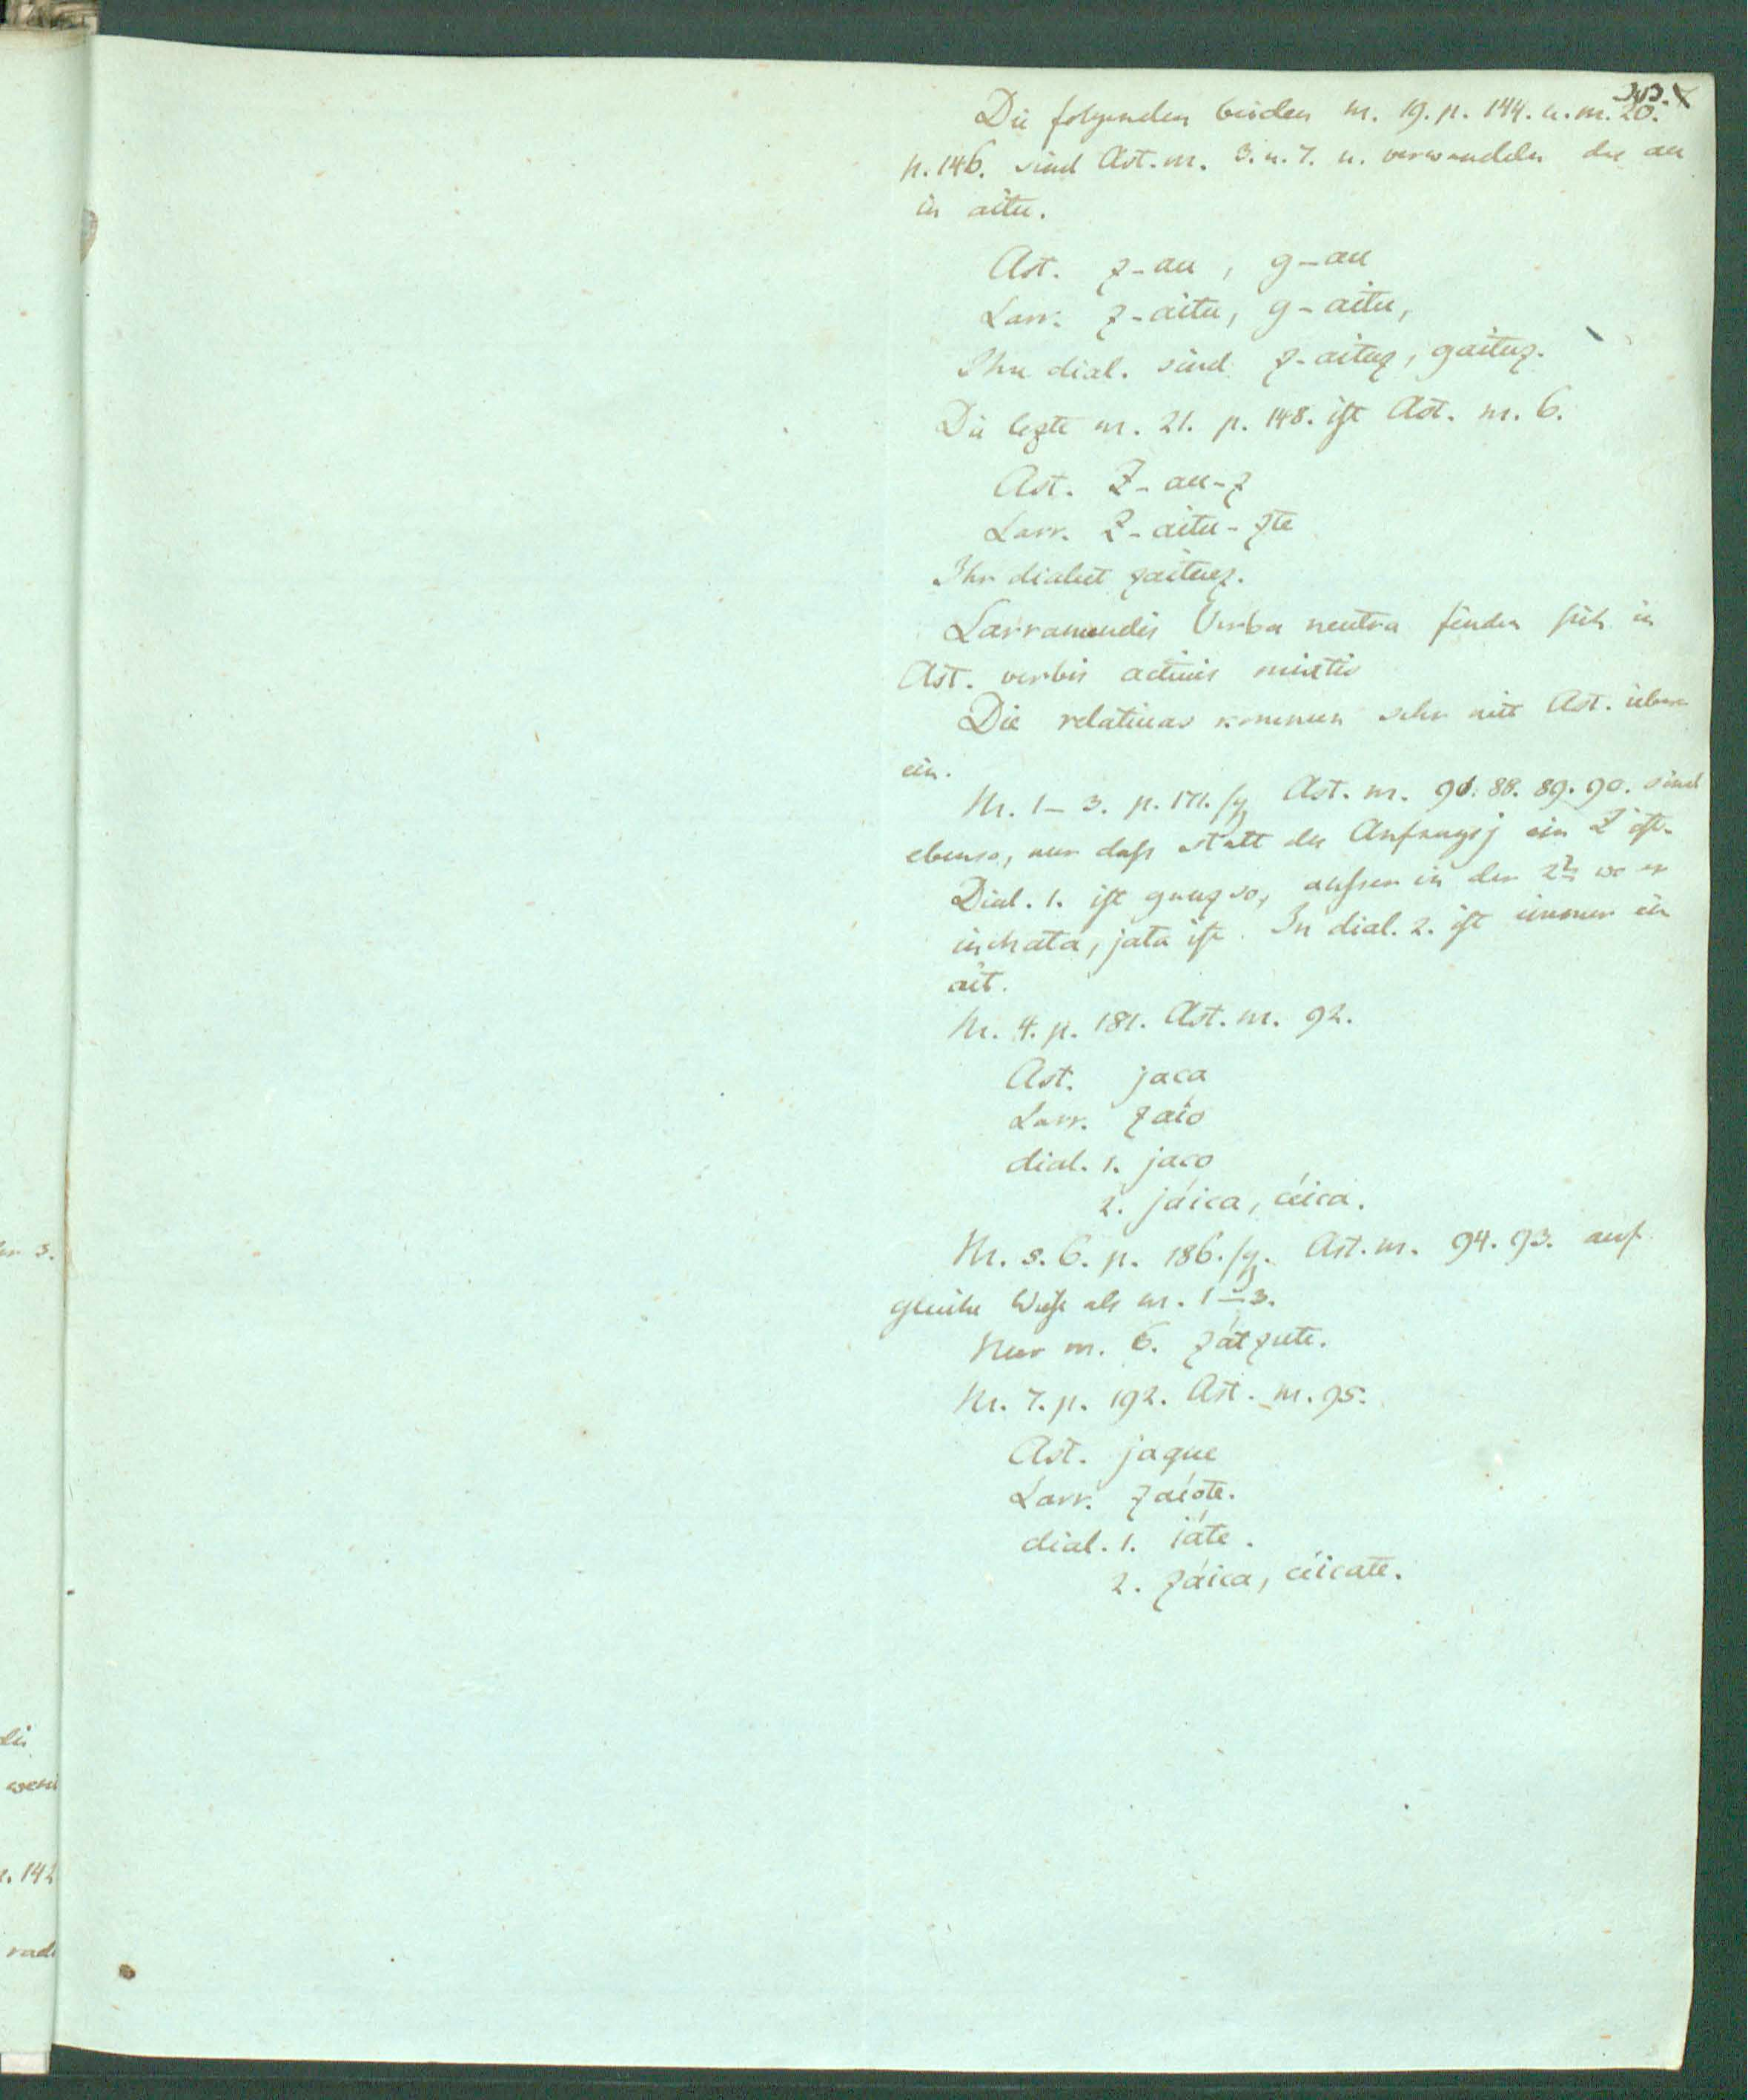 343.
Die folgenden beiden nr. 19. p. 144. u. nr. 20.
p. 146. sind Ast. nr. 3. u. 7. u. verwandeln das au
in aitu.
Ast. z-au, g-au
Larr. z-aitu, g-aitu,
Ihre dial. sind z-aituz, gaituz.
Die lezte nr. 21. p. 148. ist Ast. nr. 6.
Ast. Z-au-z
Larr. Z-aitu-zte
Ihr dialect zaituez.
Larramendis Verba neutra finden sich in
Ast. verbis activis mixtis
Die relativas kommen sehr mit Ast. über
ein.
Nr. 1–3. p. 171. sq. Ast. nr. 88. 89. 90. sind
ebenso, nur dass statt des Anfangs j ein Z ist.
Dial. 1. ist ganz so, ausser in der 2n wo er
in chata, jata ist. In dial. 2. ist immer ein
ait.
Nr. 4. p. 181. Ast. nr. 92.
Ast. jaca
Larr. zaio
dial. 1. jaco
2. jáica, céica.
Nr. 5. 6. p. 186. sq. Ast. nr. 94. 93. auf
gleiche Weise als nr. 1–3.
Nur nr. 6. zátzute.
Nr. 7. p. 192. Ast. nr. 95.
Ast. jaque
Larr. zaióte.
dial. 1. iáte.
2. záica, céicate.
r. 142